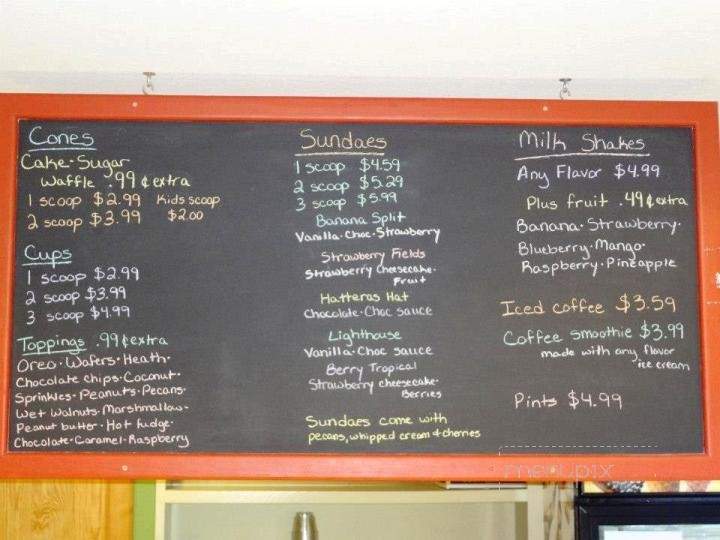 Cones
Cake · Sugar
Waffle .99¢ extra
1 scoop $2.99 Kids scoop
2 scoop $3.99 $2.00
Cups
1 scoop $2.99
2 scoop $3.99
3 scoop $4.99
Toppings .99¢ extra
Oreo · Wafers · Heath ·
Chocolate chips · Coconut ·
Sprinkles · Peanuts · Pecans ·
Wet Walnuts · Marshmallow ·
Peanut butter · Hot fudge ·
Chocolate · Caramel · Raspberry
Sundaes
1 scoop $4.59
2 scoop $5.29
3 scoop $5.99
Banana Split
Vanilla · Choc · Strawberry
Strawberry Fields
Strawberry cheesecake ·
Fruit
Hatteras Hat
Chocolate · Choc sauce
Lighthouse
Vanilla · Choc sauce
Berry Tropical
Strawberry cheesecake ·
Berries
Sundaes come with
pecans, whipped cream + cherries
Milk Shakes
Any Flavor $4.99
Plus fruit .49¢ extra
Banana · Strawberry ·
Blueberry · Mango ·
Raspberry · Pineapple
Iced coffee $3.59
Coffee smoothie $3.99
made with any flavor
ice cream
Pints $4.99
menupix